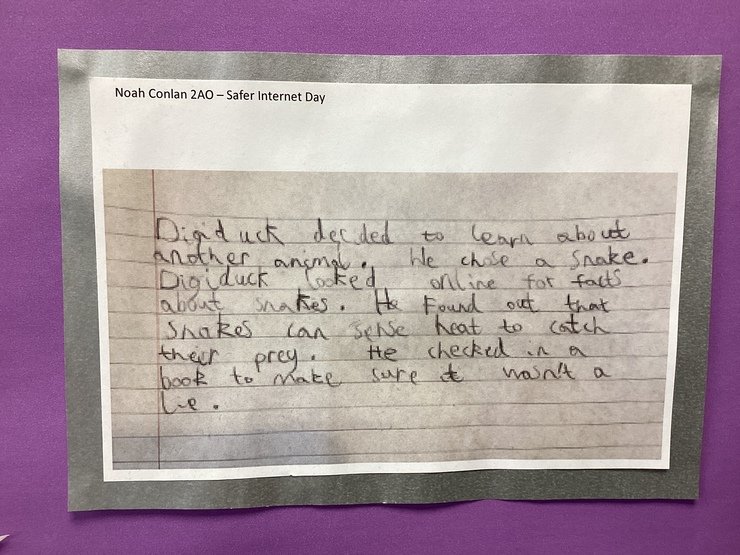 Noah Conlan 2AO – Safer Internet Day
Digiduck decided to learn about
another animal. He chose a snake.
Digiduck looked online for facts
about snakes. He Found out that
snakes can sense heat to catch
their prey. He checked in a
book to make sure it wasn't a
lie.